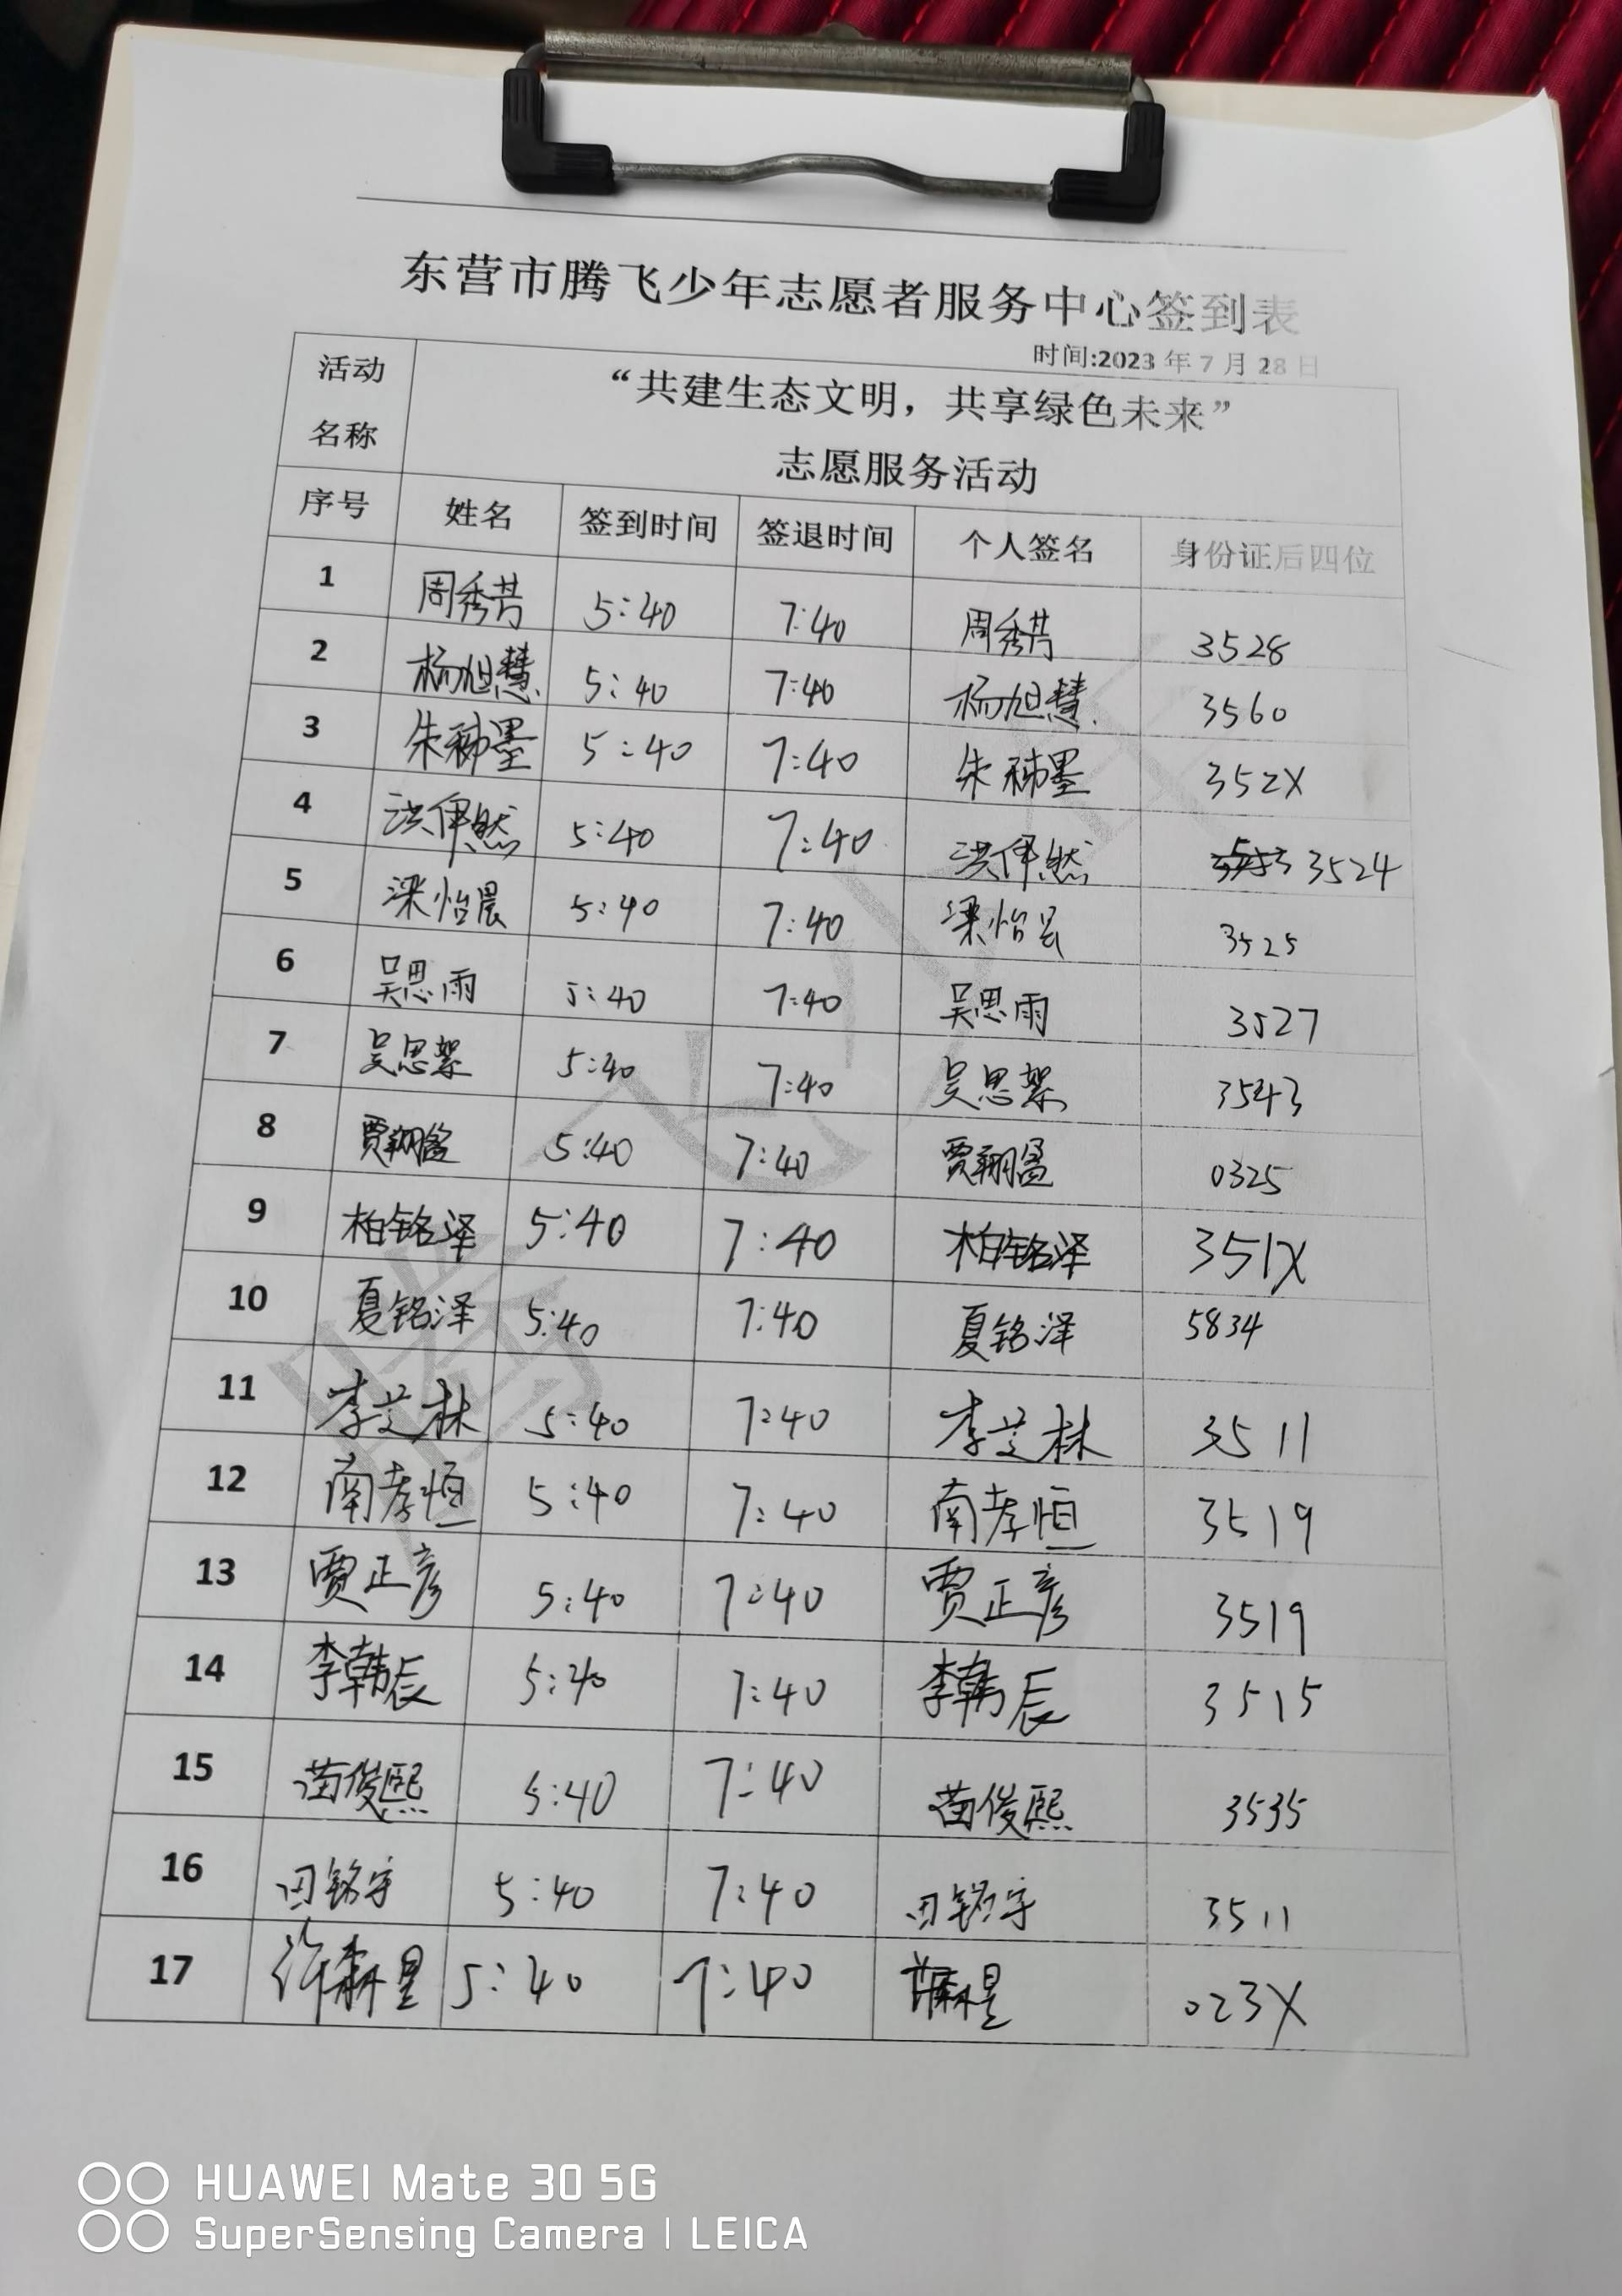 东营市腾飞少年志愿者服务中心签到表
时间:2023 年 7 月 28 日
活动名称 “共建生态文明，共享绿色未来”
志愿服务活动
序号 姓名 签到时间 签退时间 个人签名 身份证后四位
1 周秀芳 5:40 7:40 周秀芳 3528
2 杨旭慧 5:40 7:40 杨旭慧 3560
3 朱稀墨 5:40 7:40 朱稀墨 352X
4 洪伊然 5:40 7:40 洪伊然 3524
5 梁怡晨 5:40 7:40 梁怡晨 3525
6 吴思雨 5:40 7:40 吴思雨 3527
7 吴思絮 5:40 7:40 吴思絮 3543
8 贾翔 5:40 7:40 贾翔 0325
9 柏铭泽 5:40 7:40 柏铭泽 351X
10 夏铭泽 5:40 7:40 夏铭泽 5834
11 李芝林 5:40 7:40 李芝林 3511
12 南孝恒 5:40 7:40 南孝恒 3519
13 贾正彦 5:40 7:40 贾正彦 3519
14 李韩辰 5:40 7:40 李韩辰 3515
15 苗俊熙 5:40 7:40 苗俊熙 3535
16 田铭宇 5:40 7:40 田铭宇 3511
17 许森昱 5:40 7:40 许森昱 023X
腾飞少年
HUAWEI Mate 30 5G
SuperSensing Camera | LEICA